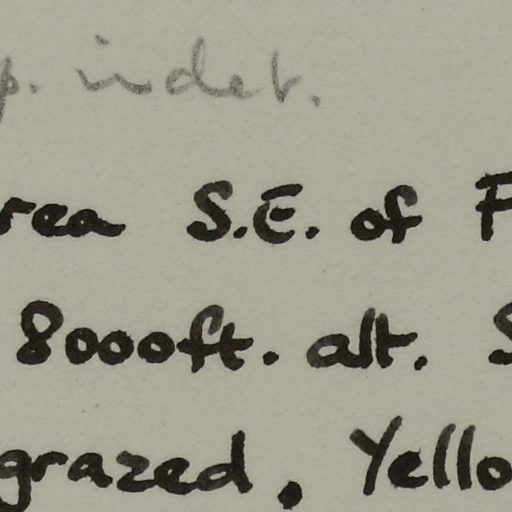 p. indet.
rea S.E. of F
8000ft. alt. S
grazed. Yello